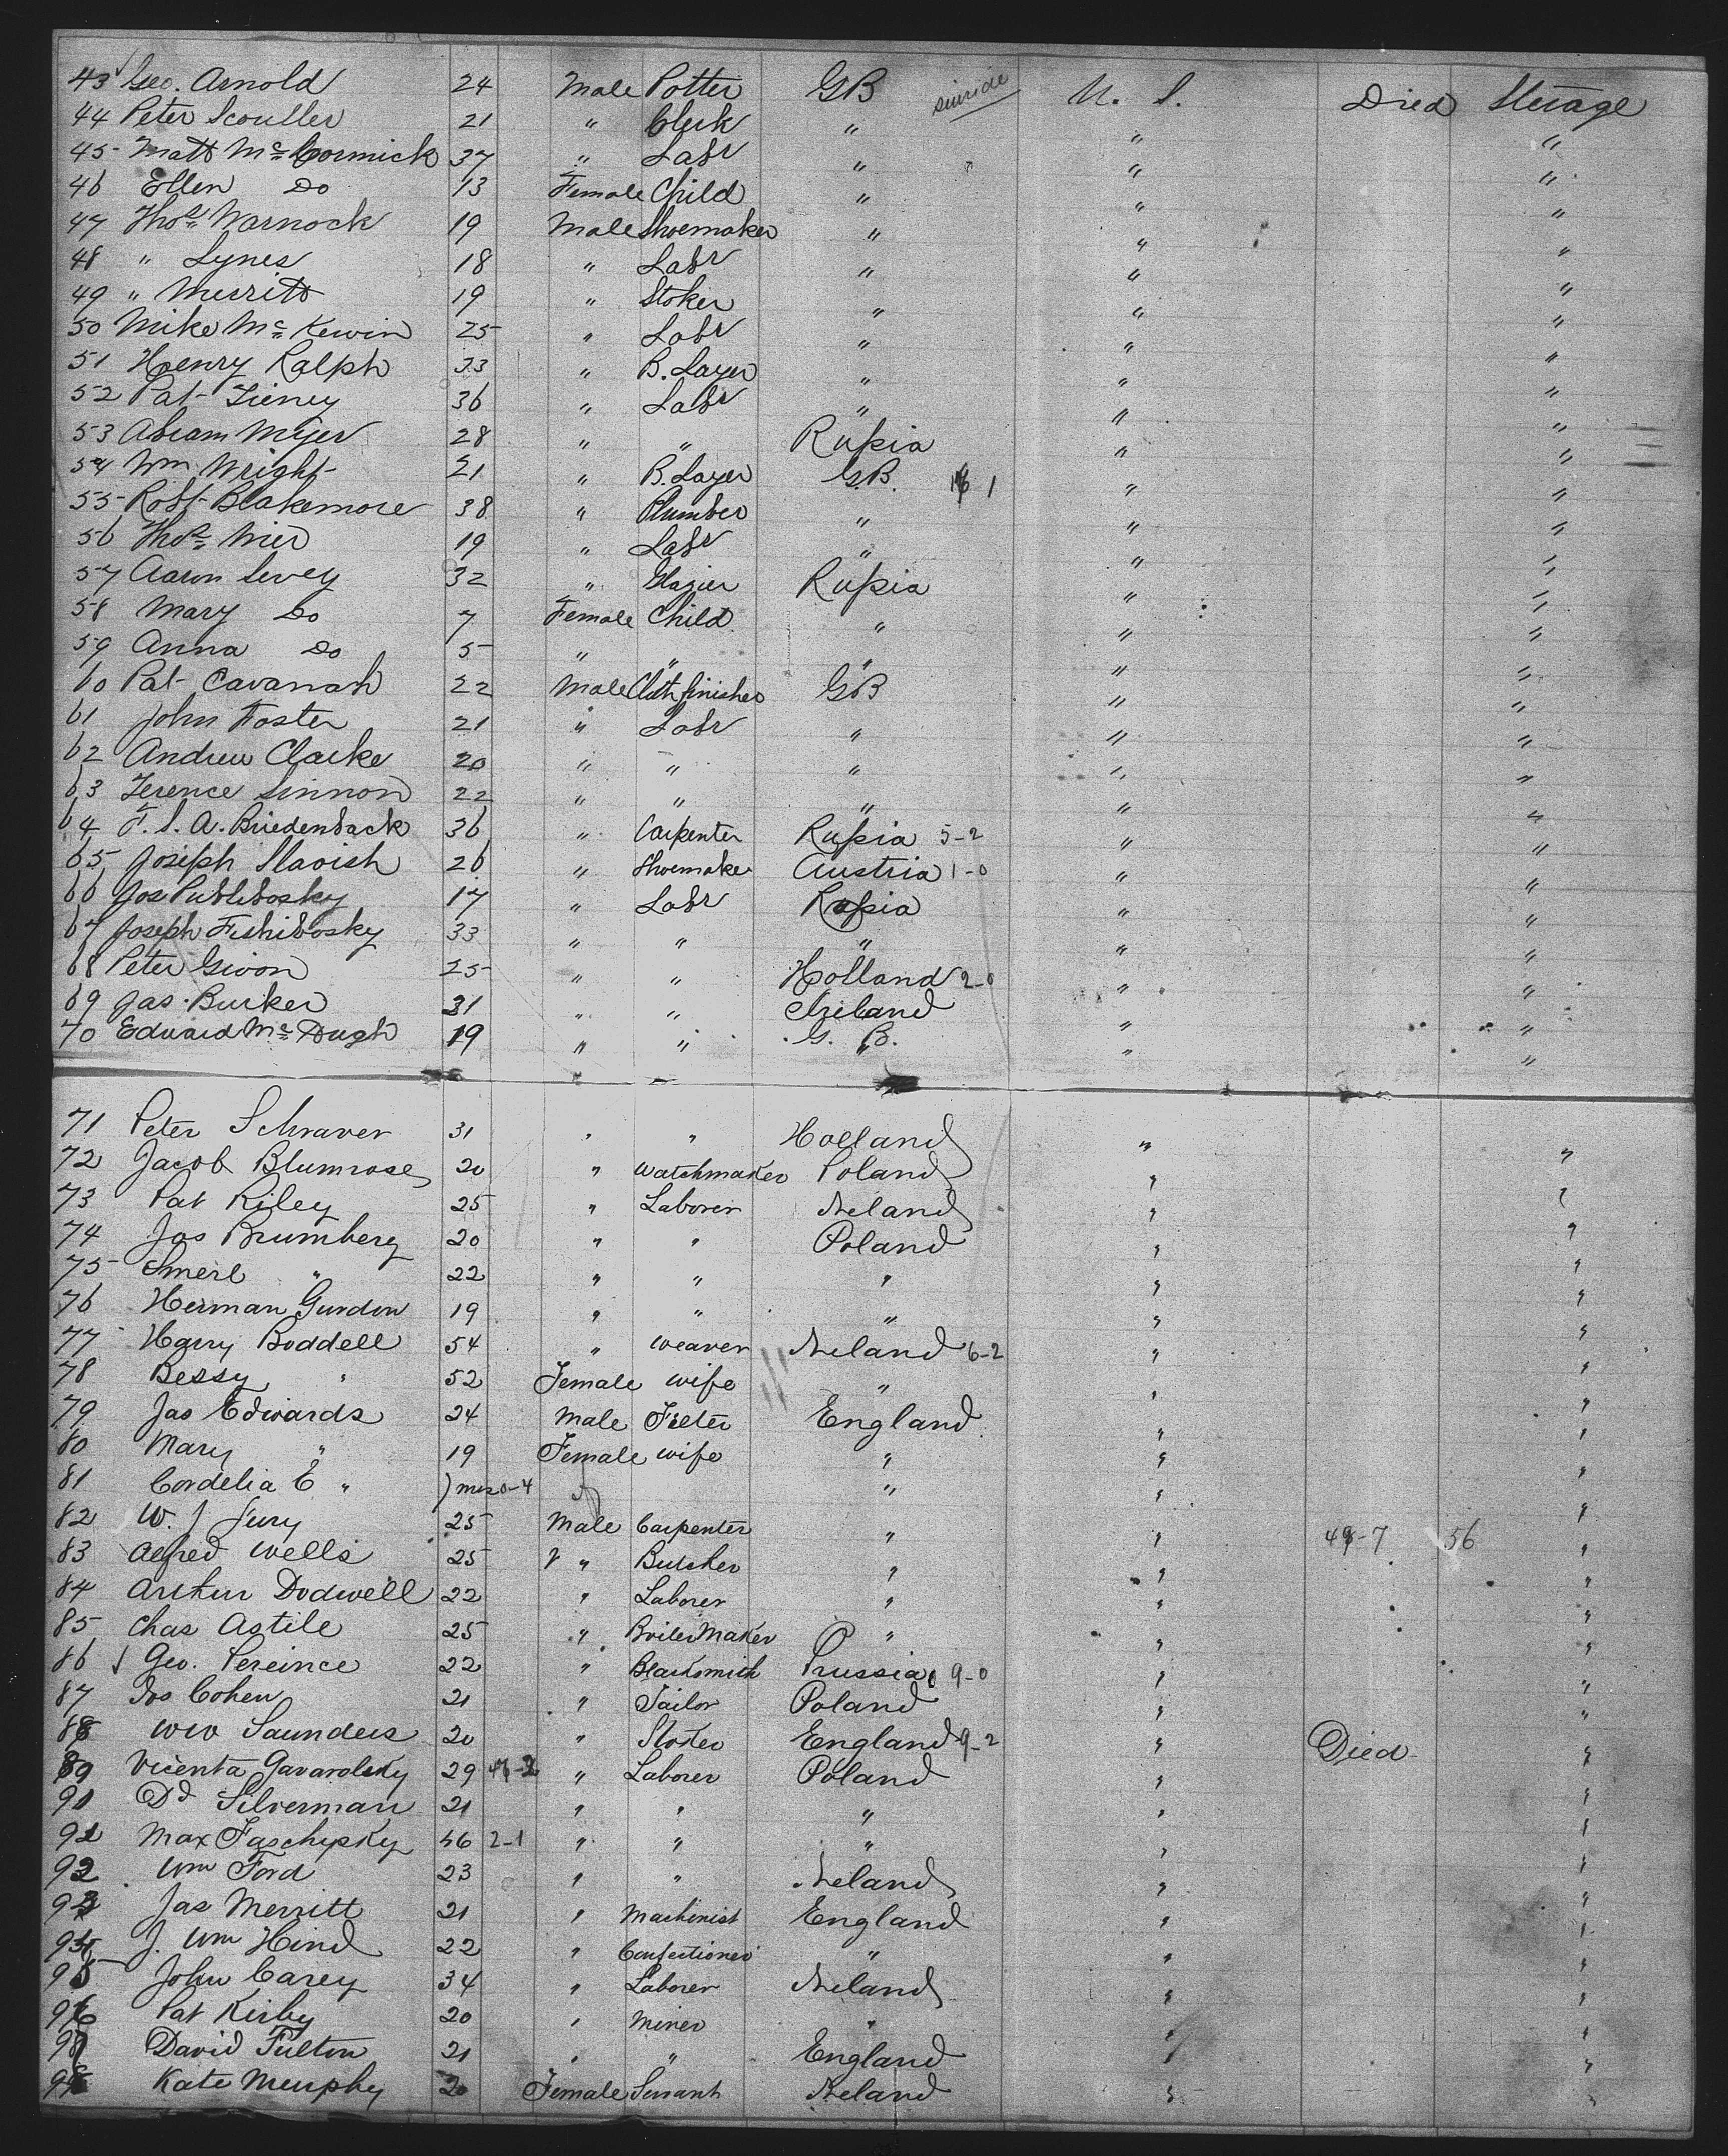 43 Geo. Arnold 24 Male Potter GB suicide U. S. Died Steerage
44 Peter Scouller 21 " Clerk " " "
45 Matt McCormick 37 " Labr " " "
46 Ellen Do 13 Female Child " " "
47 Thos Warnock 19 Male Shoemaker " " "
48 " Lynes 18 " Labr " " "
49 " Merritt 19 " Stoker " " "
50 Mike McKewin 25 " Labr " " "
51 Henry Ralph 33 " B. Layer " " "
52 Pat Tieney 36 " Labr " " "
53 Abram Myer 28 " " Russia " "
54 Wm Wright 21 " B. Layer G.B. 1 " "
55 Robt Blakemore 38 " Plumber " " "
56 Thos Wier 19 " Labr " " "
57 Aaron Levey 32 " Glazier Russia " "
58 Mary Do 7 Female Child " " "
59 Anna Do 5 " " " " "
60 Pat Cavanah 22 Male Cloth finisher GB " "
61 John Foster 21 " Labr " " "
62 Andrew Clarke 20 " " " " "
63 Terence Sinnon 22 " " " " "
64 F. S. A. Briedenback 36 " Carpenter Russia 5-2 " "
65 Joseph Slavish 26 " Shoemaker Austria 1-0 " "
66 Jos Publibosky 17 " Labr Russia " "
67 Joseph Fishibosky 33 " " " " "
68 Peter Givon 25 " " Holland 2-0 " "
69 Jas. Burker 31 " " Ireland " "
70 Edward McDugh 19 " " G. B. " "
71 Peter Schraver 31 " " Holland " "
72 Jacob Blumrose 20 " Watchmaker Poland " "
73 Pat Riley 25 " Laborer Ireland " "
74 Jos Brumberg 20 " " Poland " "
75 Smerl " 22 " " " " "
76 Herman Gurdon 19 " " " " "
77 Harry Boddell 54 " Weaver Ireland 6-2 " "
78 Bessy " 52 Female wife " " "
79 Jas Edwards 24 Male Fitter England " "
80 Mary " 19 Female wife " " "
81 Cordelia E " mos 0-4 " " "
82 W. J Jury 25 Male Carpenter " " 48-7 56 "
83 Alfred Wells 25 " Butcher " " "
84 Arthur Dodwell 22 " Laborer " " "
85 Chas Astile 25 " Boiler Maker " " "
86 Geo. Pereince 22 " Blacksmith Prussia 9-0 " "
87 Jos Cohen 21 " Tailor Poland " "
88 Wm Saunders 20 " Stoker England 9-2 " Died "
89 Vicenta Gavarolsky 29 " Laborer Poland " "
90 Dd Silverman 21 " " " " "
91 Max Faschipsky 46 2-1 " " " " "
92 Wm Ford 23 " " Ireland " "
93 Jas Merritt 21 " Machinist England " "
94 J. Wm Hind 22 " Confectioner " " "
95 John Carey 34 " Laborer Ireland " "
96 Pat Kirby 20 " Miner " " "
97 David Fulton 21 " " England " "
98 Kate Murphy 20 Female Servant Ireland " "